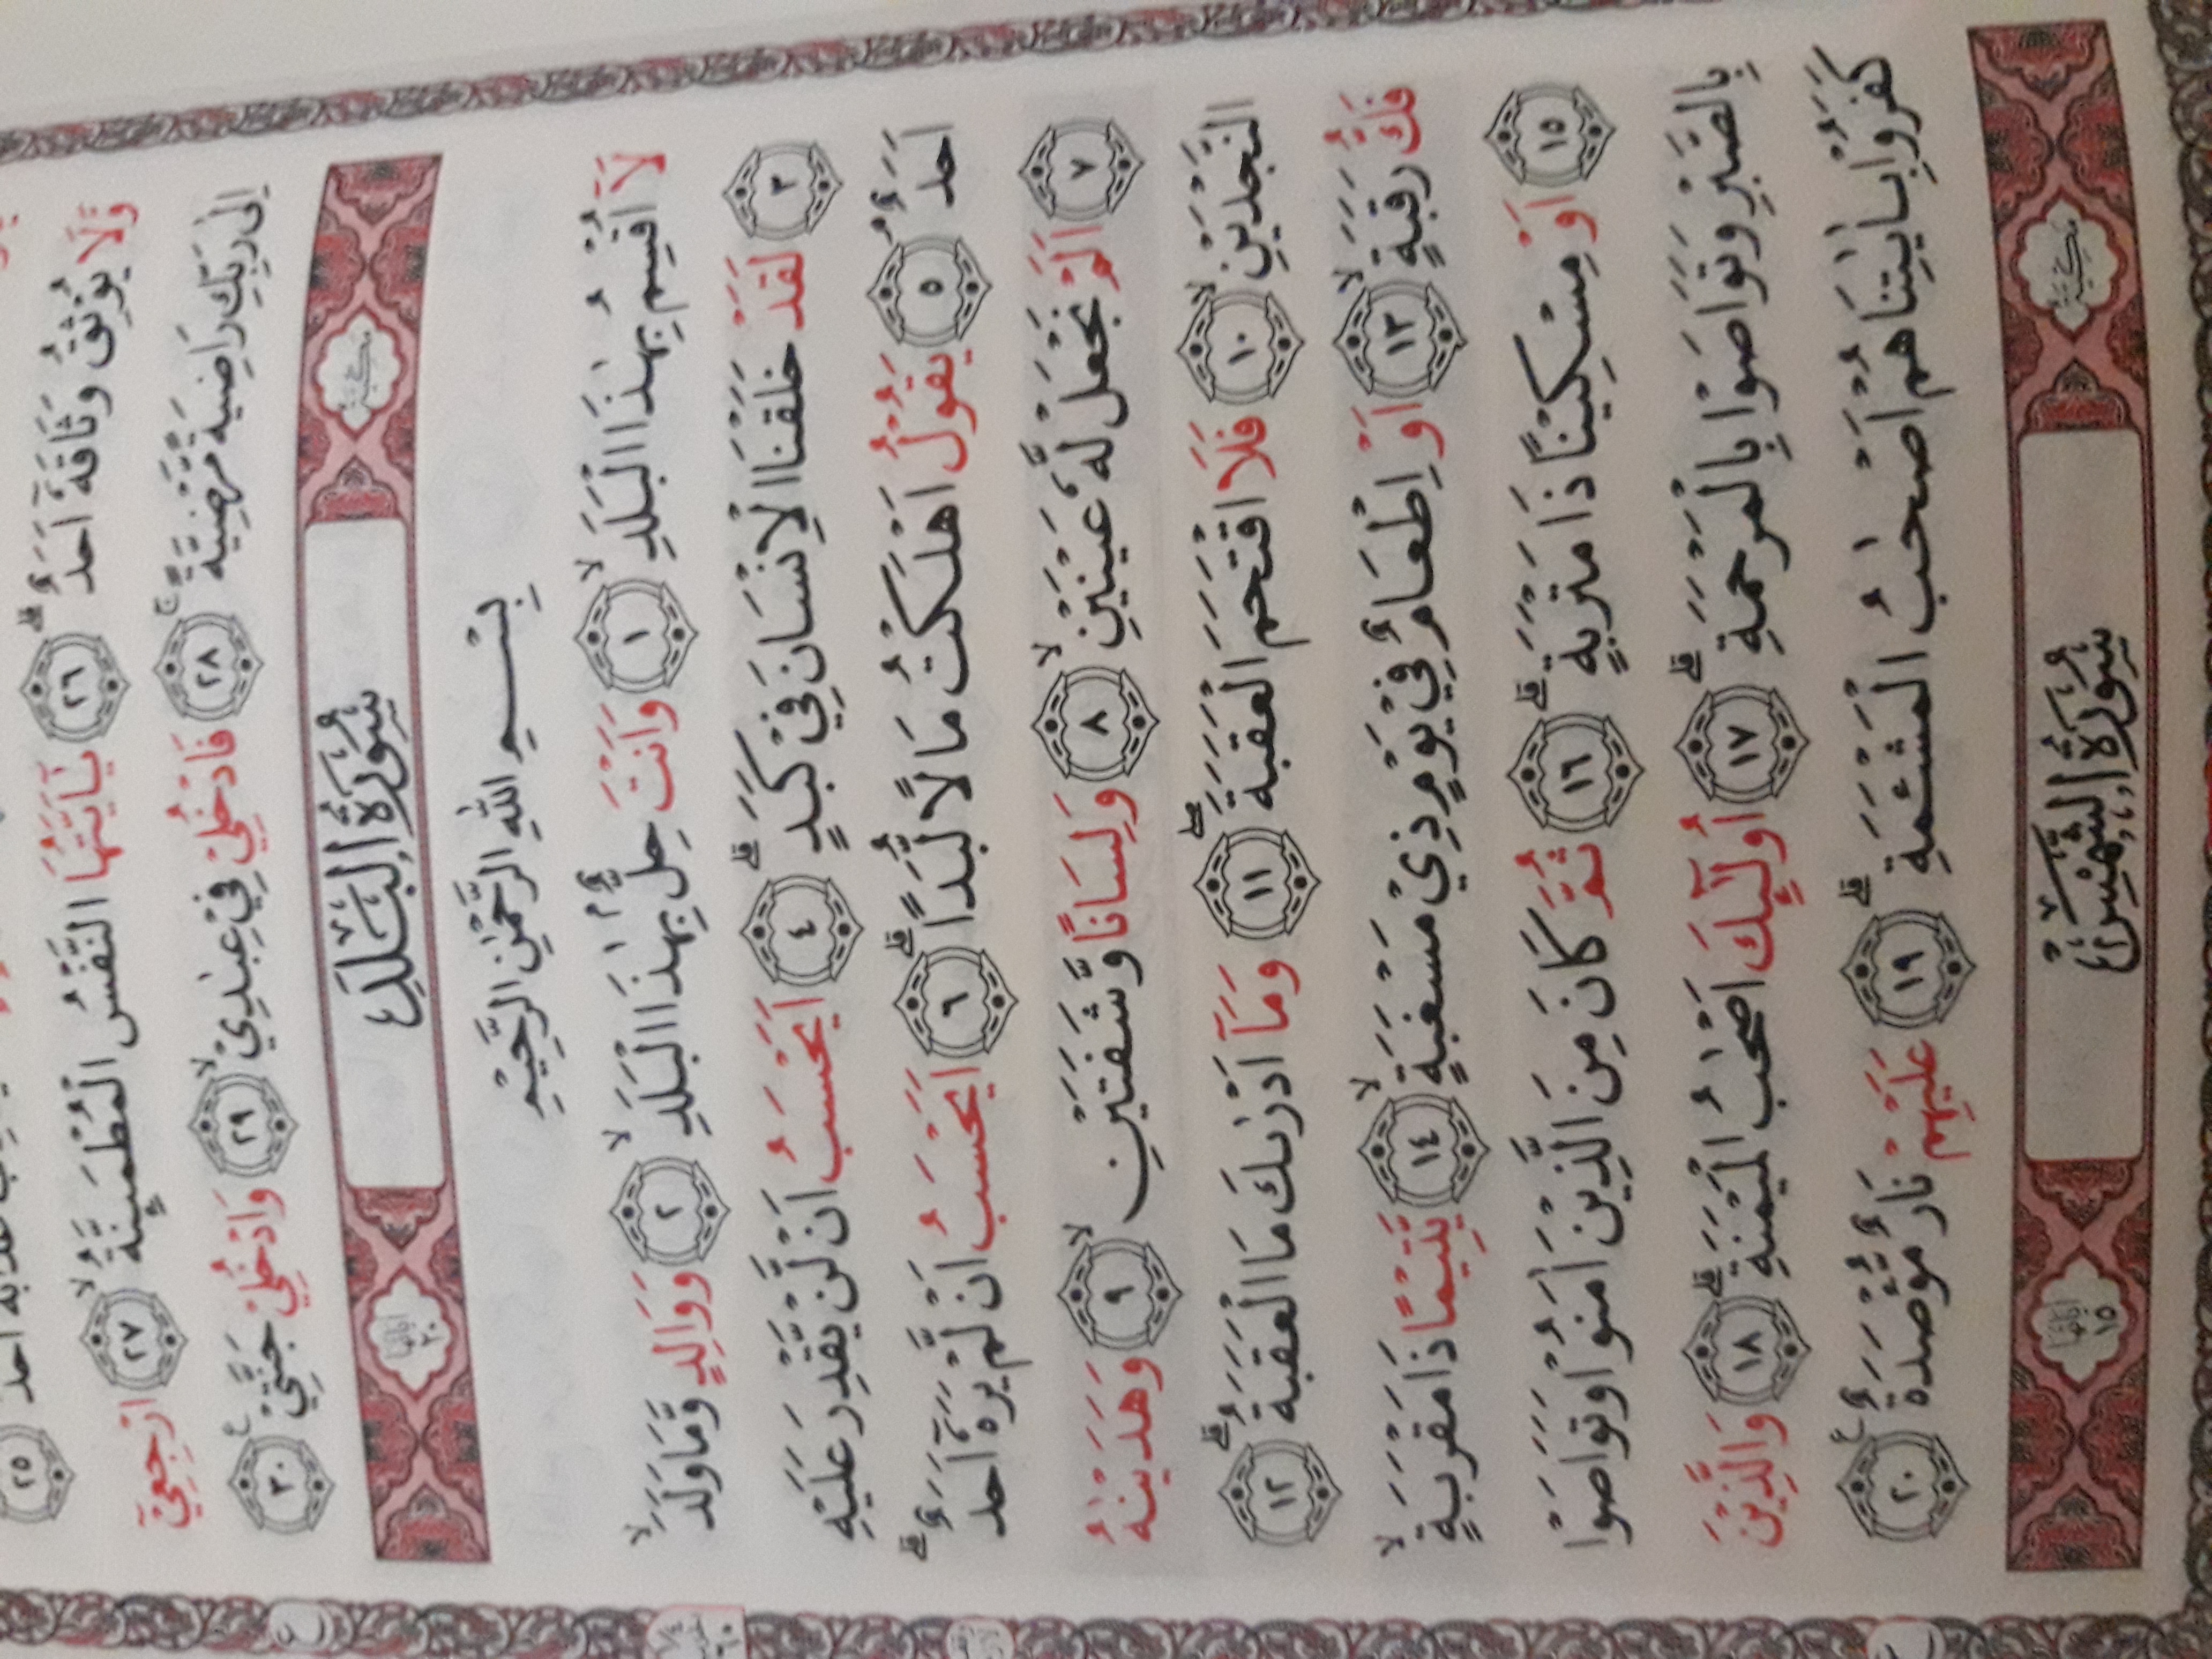 اَحَدٌ ٢٥
وَّلَا يُوْثِقُ وَثَاقَهٗٓ اَحَدٌ ۗ ٢٦ يٰٓاَيَّتُهَا النَّفْسُ الْمُطْمَىِٕنَّةُ ۙ ٢٧ ارْجِعِيْٓ
اِلٰى رَبِّكِ رَاضِيَةً مَّرْضِيَّةً ۚ ٢٨ فَادْخُلِيْ فِيْ عِبٰدِيْ ۙ ٢٩ وَادْخُلِيْ جَنَّتِيْ ࣖ ٣٠
مَكِّيَّة سُوْرَةُ الْبَلَدِ اٰيَاتُهَا ٢٠
بِسْمِ اللّٰهِ الرَّحْمٰنِ الرَّحِيْمِ
لَآ اُقْسِمُ بِهٰذَا الْبَلَدِ ۙ ١ وَاَنْتَ حِلٌّۢ بِهٰذَا الْبَلَدِ ۙ ٢ وَوَالِدٍ وَّمَا وَلَدَ ۙ
٣ لَقَدْ خَلَقْنَا الْاِنْسَانَ فِيْ كَبَدٍ ۗ ٤ اَيَحْسَبُ اَنْ لَّنْ يَّقْدِرَ عَلَيْهِ
اَحَدٌ ۘ ٥ يَقُوْلُ اَهْلَكْتُ مَالًا لُّبَدًا ۗ ٦ اَيَحْسَبُ اَنْ لَّمْ يَرَهٗٓ اَحَدٌ ۗ
٧ اَلَمْ نَجْعَلْ لَّهٗ عَيْنَيْنِ ۙ ٨ وَلِسَانًا وَّشَفَتَيْنِ ۙ ٩ وَهَدَيْنٰهُ
النَّجْدَيْنِ ۙ ١٠ فَلَا اقْتَحَمَ الْعَقَبَةَ ۖ ١١ وَمَآ اَدْرٰىكَ مَا الْعَقَبَةُ ۗ ١٢
فَكُّ رَقَبَةٍ ۙ ١٣ اَوْ اِطْعَامٌ فِيْ يَوْمٍ ذِيْ مَسْغَبَةٍ ۙ ١٤ يَّتِيْمًا ذَا مَقْرَبَةٍ ۙ
١٥ اَوْ مِسْكِيْنًا ذَا مَتْرَبَةٍ ۗ ١٦ ثُمَّ كَانَ مِنَ الَّذِيْنَ اٰمَنُوْا وَتَوَاصَوْا
بِالصَّبْرِ وَتَوَاصَوْا بِالْمَرْحَمَةِ ۗ ١٧ اُولٰۤىِٕكَ اَصْحٰبُ الْمَيْمَنَةِ ۗ ١٨ وَالَّذِيْنَ
كَفَرُوْا بِاٰيٰتِنَا هُمْ اَصْحٰبُ الْمَشْـَٔمَةِ ۗ ١٩ عَلَيْهِمْ نَارٌ مُّؤْصَدَةٌ ࣖ ٢٠
مَكِّيَّة سُوْرَةُ الشَّمْسِ اٰيَاتُهَا ١٥